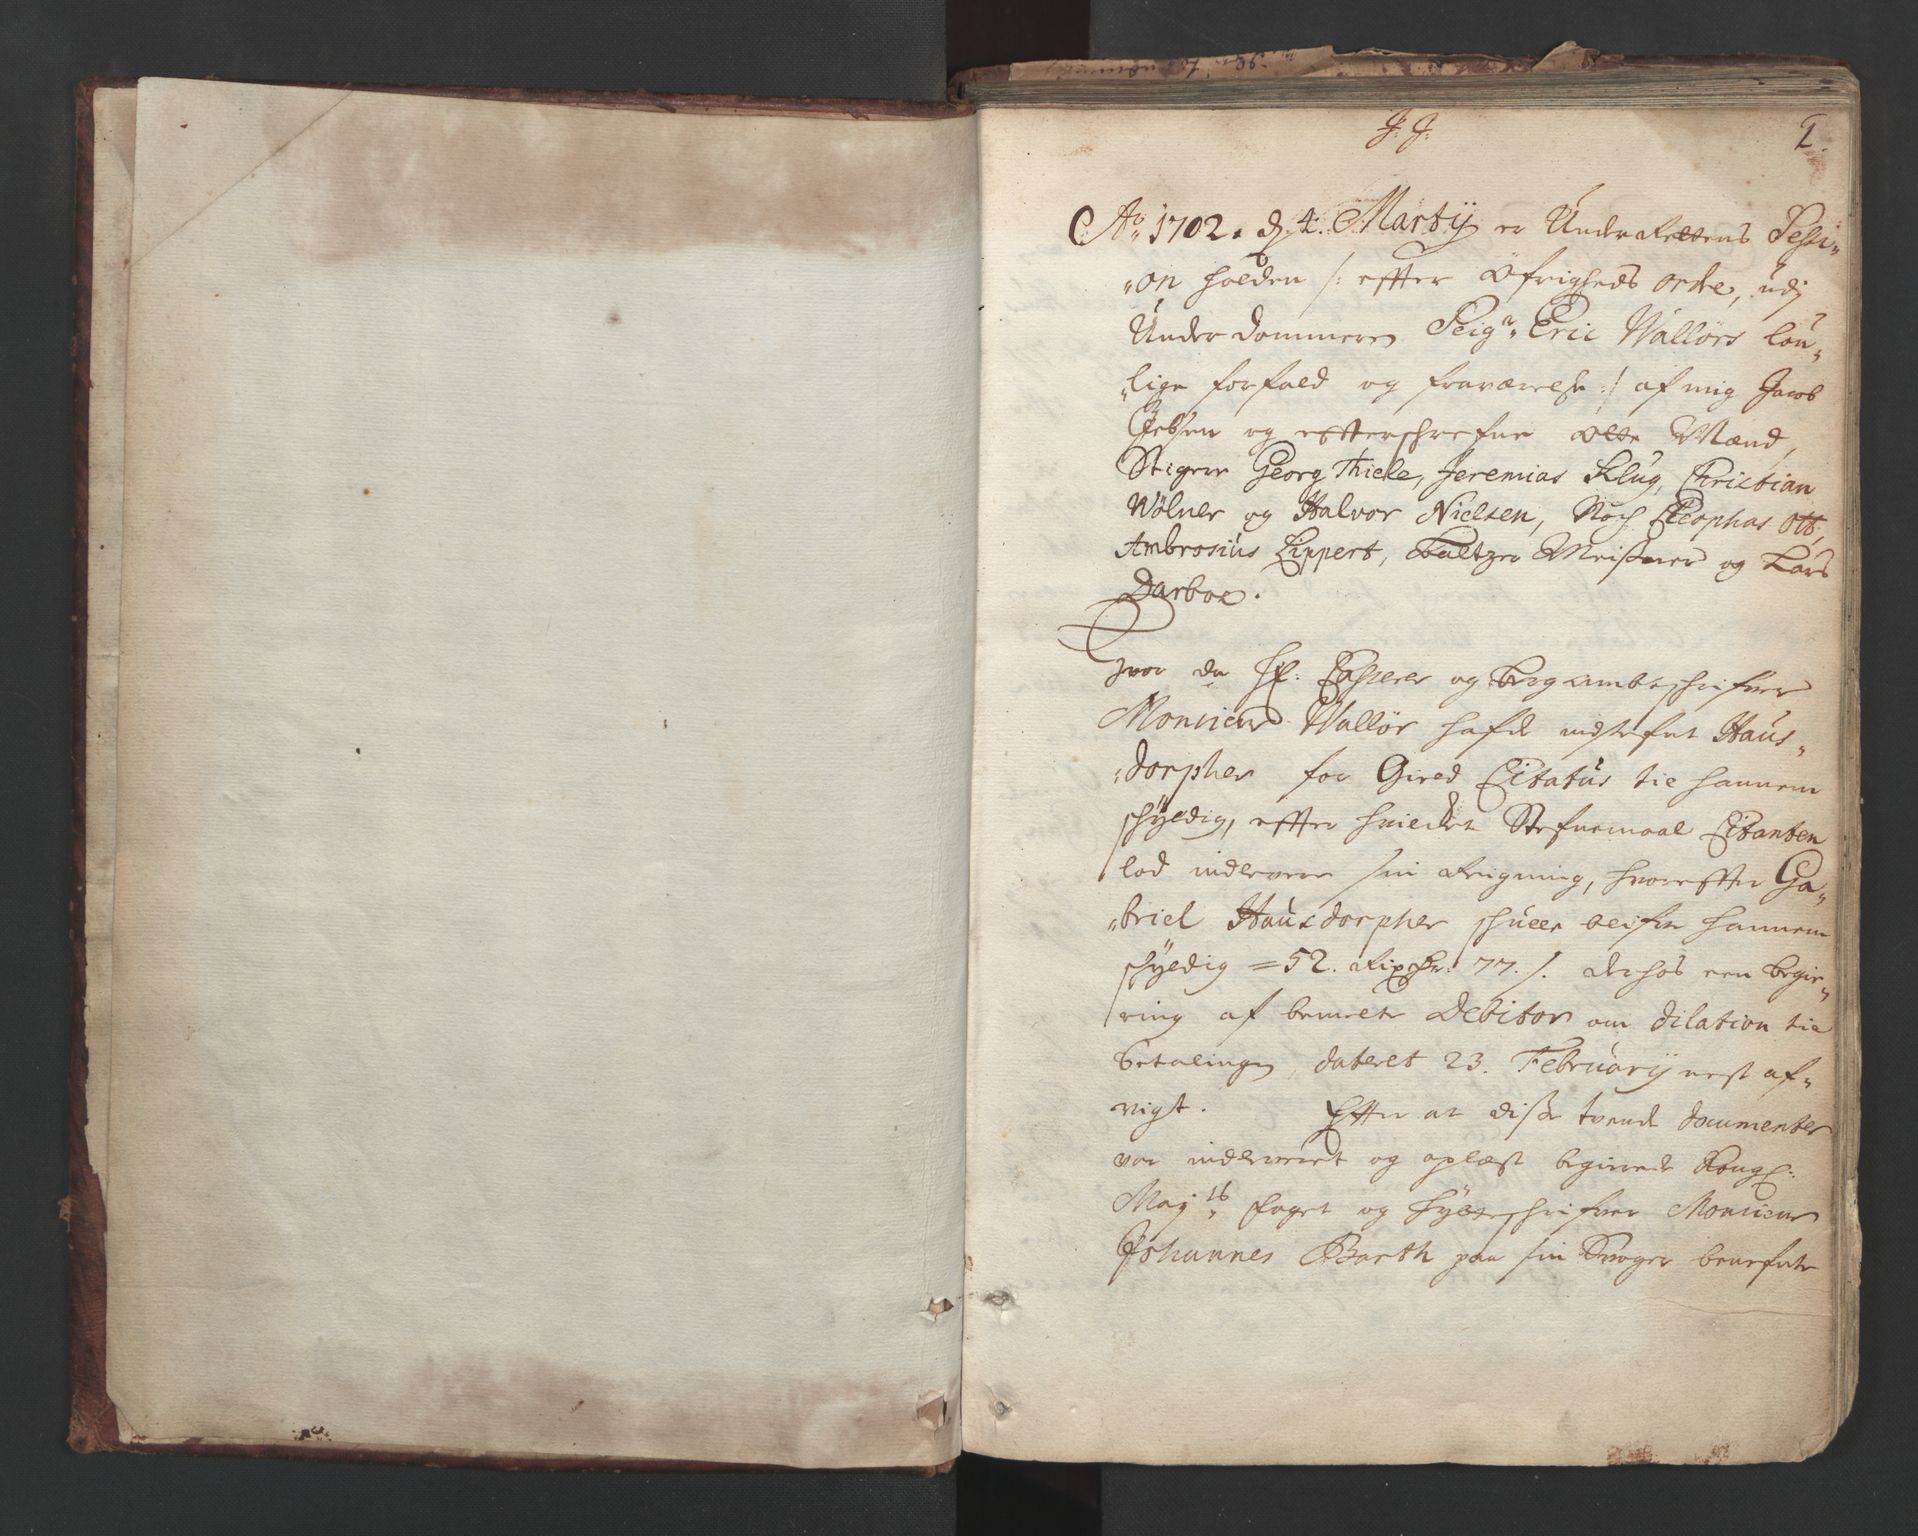 J: J:
1.
Ao 1702. d 4. Martij er Under Rettens Sessi-
on holden /: effter Öfrigheds ordre, udj
Underdommeren Seigr Eric Wallörs lou-
lige forfald og fraværelse :/ af mig Jacob
Jebsen og effterschrefne Otte Mænd,
Stigere Georg Thiele, Jeremias Klug, Christian
Wölner og Halvor Nielsen, Noch Cleophas Ott,
Ambrosius Lippert, Baltzer Meißner og Lars
Darboe.
Hvor da Hr: Casserer og Bergambtschrifver
Monsieur Wallör hafde indstefnt Haus-
dorpher for Gield Citatus til hannem
schyldig, effter hvilket Stefnemaal Citanten
lod indlevere sin Reigning, hvoreffter Ga-
briel Hausdorpher schulle blifve hannem
schyldig = 52. Rixdr. 77. s. derhos een begie-
ring af bemelte Debitor om dilation til
betalingen, dateret 23. February nest af-
vigt. Effter at disse tvende documenter
var indleveret og oplæst begierede Kongl:
Mayts foget og Hytteschrifver Monsieur
Johannes Barth paa sin Svoger benefnte